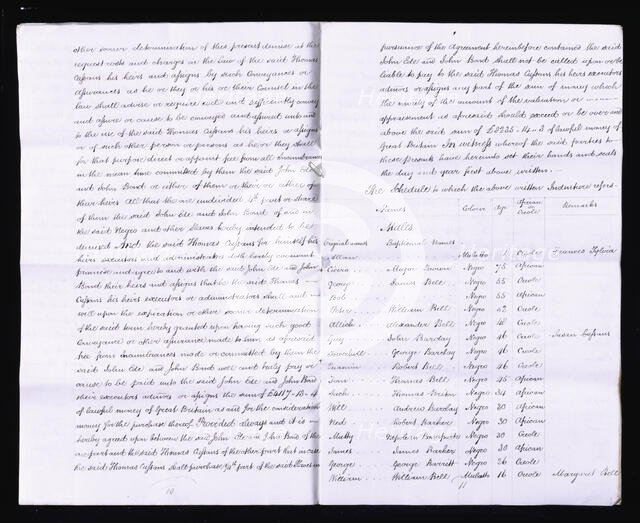 other sooner determination of this present demise at the
request costs and charges in the law of the said Thomas
Cussans his heirs and assigns by such Conveyances or
assurances as he or they or his or their Counsel in the
law shall advise or require and sufficiently convey
and assure or cause to be conveyed and assured unto and
to the use of the said Thomas Cussans his heirs or assigns
or of such other person or persons as he or they shall
for that purpose direct or appoint free from all incumbrances
in the mean time committed by them the said John Ede
and John Bond or either of them or their or either of
their heirs all that the one undivided part or share
of them the said John Ede and John Bond of and in
the said Negro and other Slaves hereby intended to be
demised And the said Thomas Cussans for himself his
heirs executors and administrators doth hereby covenant
promise and agree to and with the said John Ede and John
Bond their heirs and assigns that he the said Thomas
Cussans his heirs executors or administrators shall and
will upon the expiration or other sooner determination
of the said term hereby granted upon having such good
Conveyance or other assurance made to him as aforesaid
free from incumbrances made or committed by them the
said John Ede and John Bond well and truly pay or
cause to be paid unto the said John Ede and John Bond
their executors admors or assigns the sum of £4117
of lawful money of Great Britain as and for the consideration
money for the purchase thereof Provided always and it is
hereby agreed upon between the said John Ede and John Bond of the
one part and the said Thomas Cussans of the other part that in case
the said Thomas Cussans shall purchase part of the said Slaves in
10
pursuance of the agreement hereinbefore contained the said
John Ede and John Bond shall not be called upon or be
liable to pay to the said Thomas Cussans his heirs executors
admors or assigns any part of the sum of money which
the moiety of the amount of the valuation or
appraisement as aforesaid should exceed or be over and
above the said sum of £8235.14.3 of lawful money of
Great Britain In witness whereof the said parties to
these presents have hereunto set their hands and seals
the day and year first above written.
The Schedule to which the above written Indenture refers.
Names Colour Age African or Creole Remarks
Males
Original names Baptismal Names
Mulatto Creole Frances Sylvia
Cicero Major Brown Negro 75 African
George James Bell Negro 55 Creole
Bob Negro 55 African
Peter William Bell Negro 52 Creole
Alexander Bell Negro Creole
Guy John Barclay Negro 46 Creole Susan Cussans
George Barclay Negro 46 Creole
Robert Bell Negro 46 Creole
Thomas Bell Negro 45 African
Thomas Negro 34 African
Will Andrew Barclay Negro 30 African
Ned Robert Barker Negro 30 African
Napoleon Bonaparte Negro 30 Creole
James James Barker Negro 30 African
George George Barrett Negro 26 Creole
William William Bell Mulatto 16 Creole Margaret Bell
11